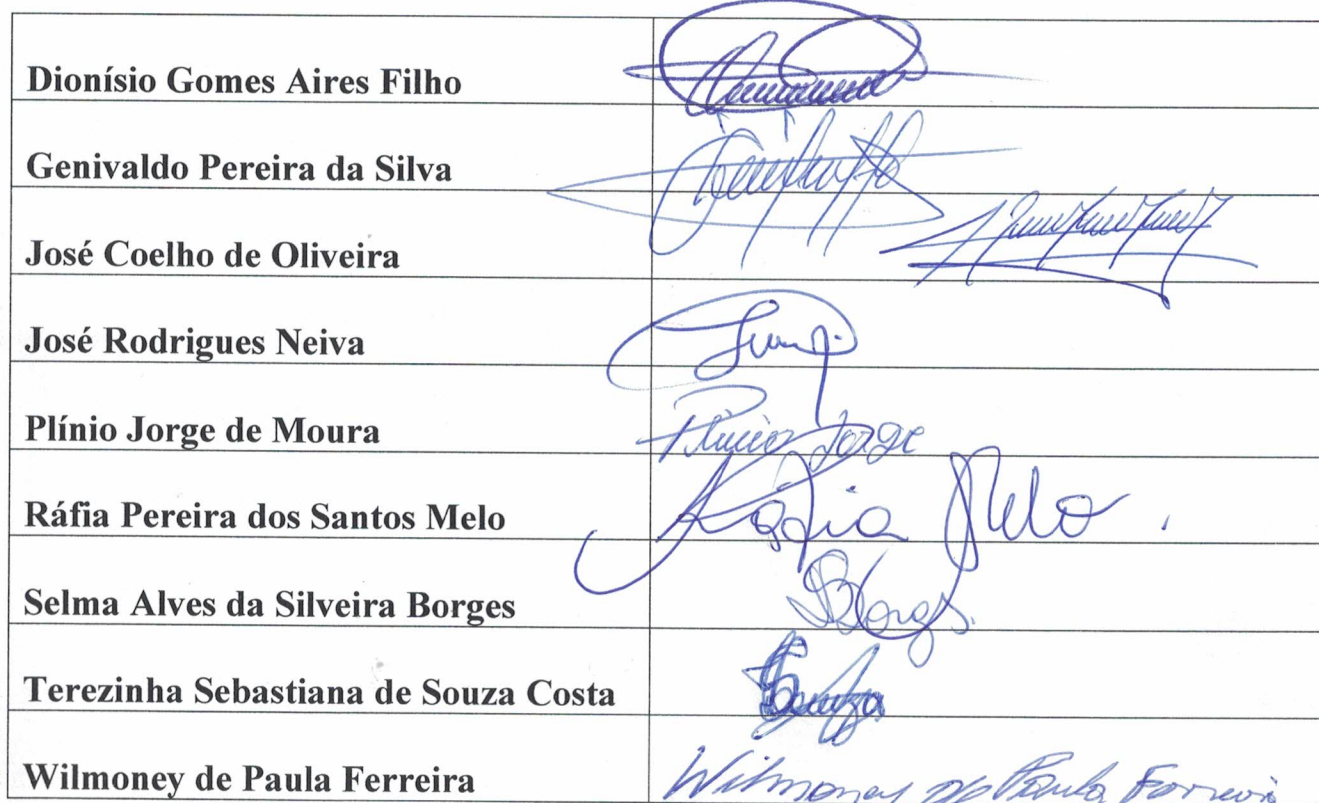 Dionísio Gomes Aires Filho
Genivaldo Pereira da Silva
José Coelho de Oliveira
José Rodrigues Neiva
Plínio Jorge de Moura Plínio Jorge
Ráfia Pereira dos Santos Melo Ráfia Melo
Selma Alves da Silveira Borges SBorges
Terezinha Sebastiana de Souza Costa Souza
Wilmoney de Paula Ferreira Wilmoney de Paula Ferreira